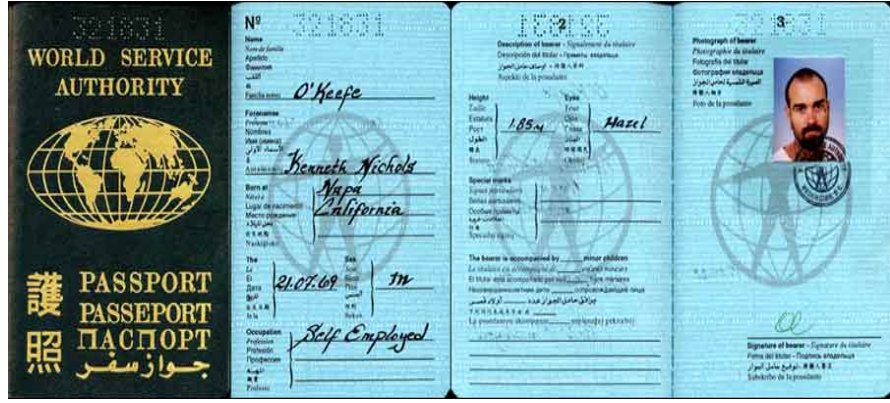 321831
WORLD SERVICE
AUTHORITY
護
照
PASSPORT
PASSEPORT
ПАСПОРТ
جواز سفر
Nº 321831
Name
Nom de famille
Apellido
Фамилия
اللقب
姓
Familia nomo
O'Keefe
Forenames
Prénoms
Nombres
Имя (имена)
الأسماء الأولى
名
Kenneth Nichols
Born at
Né(e) à
Lugar de nacimiento
Место рождения
Naskiĝloko
Napa
California
The
Le
El
Дата
Sex
Sexe
Sexo
Пол
الجنس
性別
Sekso
21.07.69
M
Occupation
Profession
Profesión
Профессия
المهنة
職業
Profesio
Self Employed
2
321831
Description of bearer - Signalement du titulaire
Descripción del titular - Приметы владельца
Aspekto de la posedanto
Height
Taille
Estatura
Рост
الطول
Eyes
Yeux
Ojos
Глаза
1.85M
Hazel
Special marks
Signes particuliers
Señas particulares
Особые приметы
Specialaj signoj
The bearer is accompanied by minor children
Le titulaire est accompagné de enfants mineurs
El titular está acompañado por
La posedanto
3
321831
Photograph of bearer
Photographie du titulaire
Fotografía del titular
Фотография владельца
Foto de la posedanto
Signature of bearer - Signature du titulaire
Firma del titular - Подпись владельца
Subskribo de la posedanto